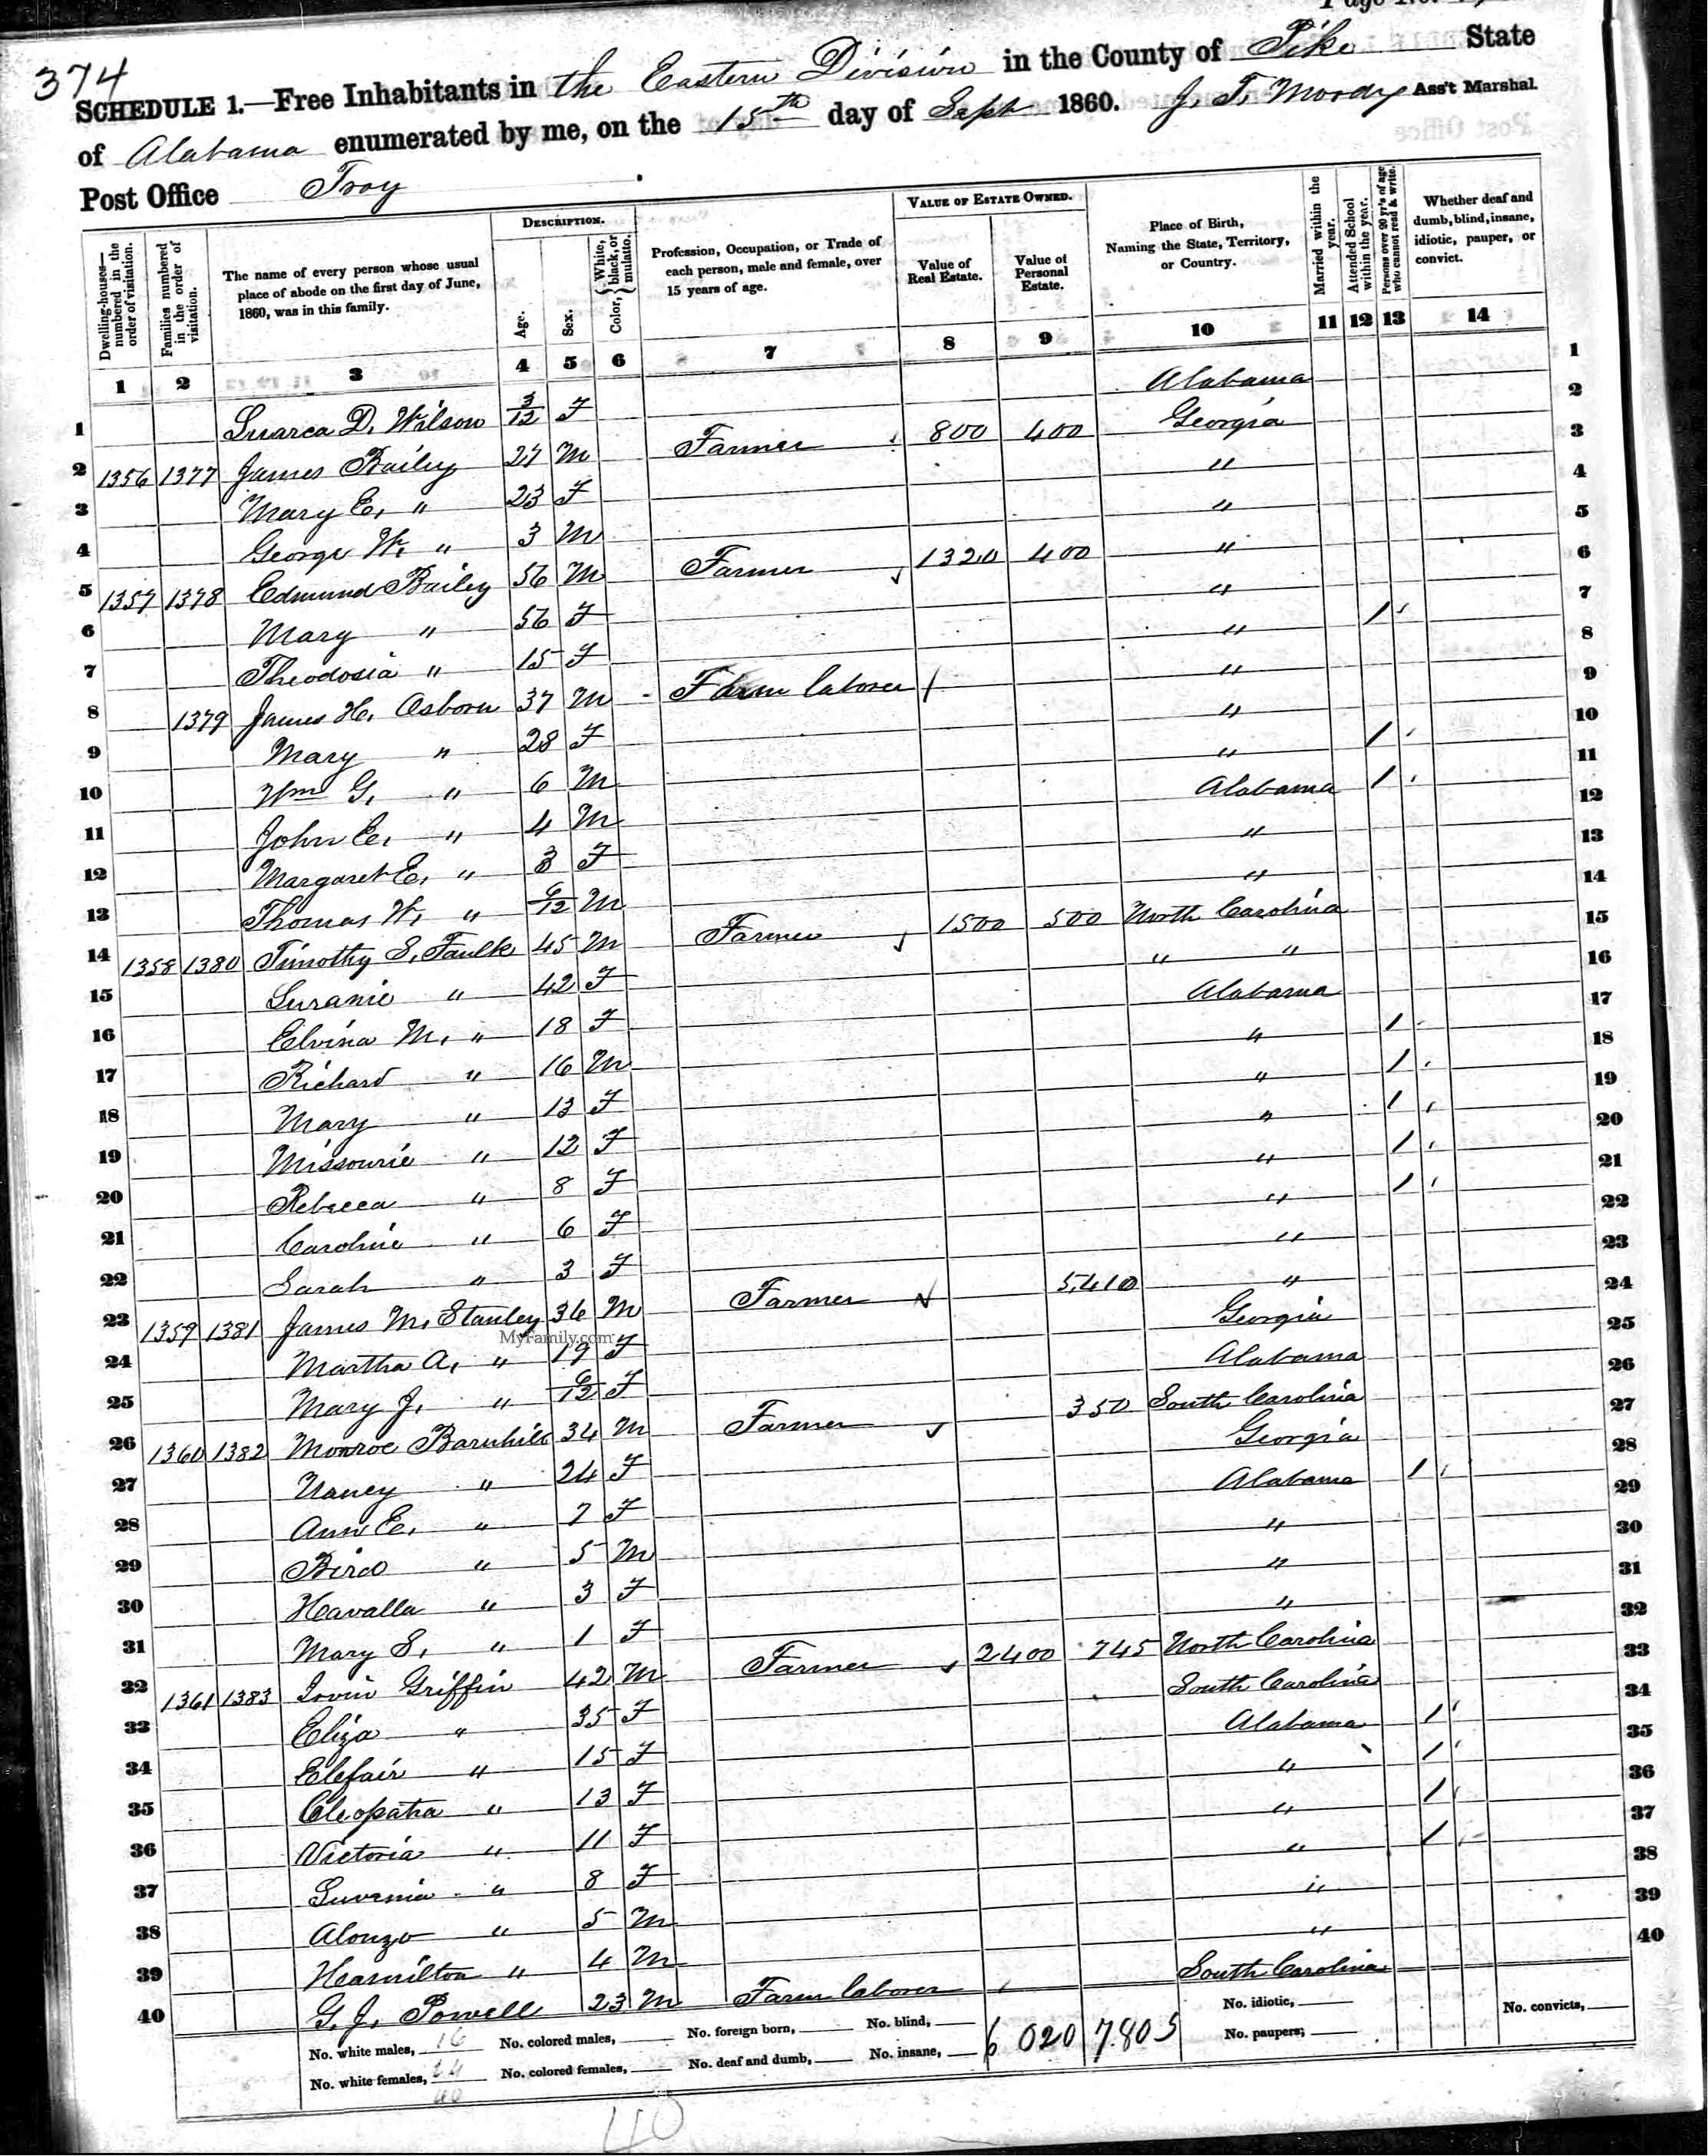 Page No.
374
SCHEDULE 1.—Free Inhabitants in the Eastern Division in the County of Pike State
of Alabama enumerated by me, on the 15th day of Sept 1860. J. T. Moody Ass't Marshal.
Post Office Troy
Dwelling-houses—numbered in the order of visitation. Families numbered in the order of visitation. The name of every person whose usual place of abode on the first day of June, 1860, was in this family. DESCRIPTION. Age. Sex. Color, {White, black, or mulatto. Profession, Occupation, or Trade of each person, male and female, over 15 years of age. VALUE OF ESTATE OWNED. Value of Real Estate. Value of Personal Estate. Place of Birth, Naming the State, Territory, or Country. Married within the year. Attended School within the year. Persons over 20 yr's of age who cannot read & write. Whether deaf and dumb, blind, insane, idiotic, pauper, or convict.
1 2 3 4 5 6 7 8 9 10 11 12 13 14
1 D. Wilson 3/12 F Alabama 1
2 1356 1377 James Bailey 27 M Farmer 800 400 Georgia 2
3 Mary E. " 23 F " 3
4 George W. " 3 M " 4
5 1357 1378 Edmund Bailey 56 M Farmer 1320 400 " 5
6 Mary " 56 F " 6
7 Theodosia " 15 F " 1 7
8 1379 James H. Osborn 37 M Farm laborer " 8
9 Mary " 28 F " 9
10 Wm G. " 6 M " 1 10
11 John E. " 4 M Alabama 1 11
12 Margaret E. " 3 F " 12
13 Thomas W. " 6/12 M " 13
14 1358 1380 Timothy S. Faulk 45 M Farmer 1500 500 North Carolina 14
15 Luranie " 42 F " " 15
16 Elvina M. " 18 F Alabama 16
17 Richard " 16 M " 1 17
18 Mary " 13 F " 1 18
19 Missourie " 12 F " 1 19
20 Rebecca " 8 F " 1 20
21 Caroline " 6 F " 1 21
22 Sarah " 3 F " 22
23 1359 1381 James M. Stanley 36 M Farmer 5,410 " 23
MyFamily.com
24 Martha A. " 19 F Georgia 24
25 Mary J. " 6/12 F Alabama 25
26 1360 1382 Monroe Barnhill 34 M Farmer 350 South Carolina 26
27 Nancy " 24 F Georgia 27
28 Ann E. " 7 F Alabama 1 28
29 Bird " 5 M " 29
30 Havalla " 3 F " 30
31 Mary S. " 1 F " 31
32 1361 1383 Irvin Griffin 42 M Farmer 2400 745 North Carolina 32
33 Eliza " 35 F South Carolina 33
34 Elefair " 15 F Alabama 1 34
35 Cleopatra " 13 F " 1 35
36 Victoria " 11 F " 1 36
37 Luvenia " 8 F " 1 37
38 Alonzo " 5 M " 38
39 Hamilton " 4 M " 39
40 G. J. Powell 23 M Farm laborer South Carolina 40
No. white males, 16 No. colored males, No. foreign born, No. blind, 6 020 7.805 No. idiotic, No. convicts,
No. white females, 24 No. colored females, No. deaf and dumb, No. insane, No. paupers,
40
40